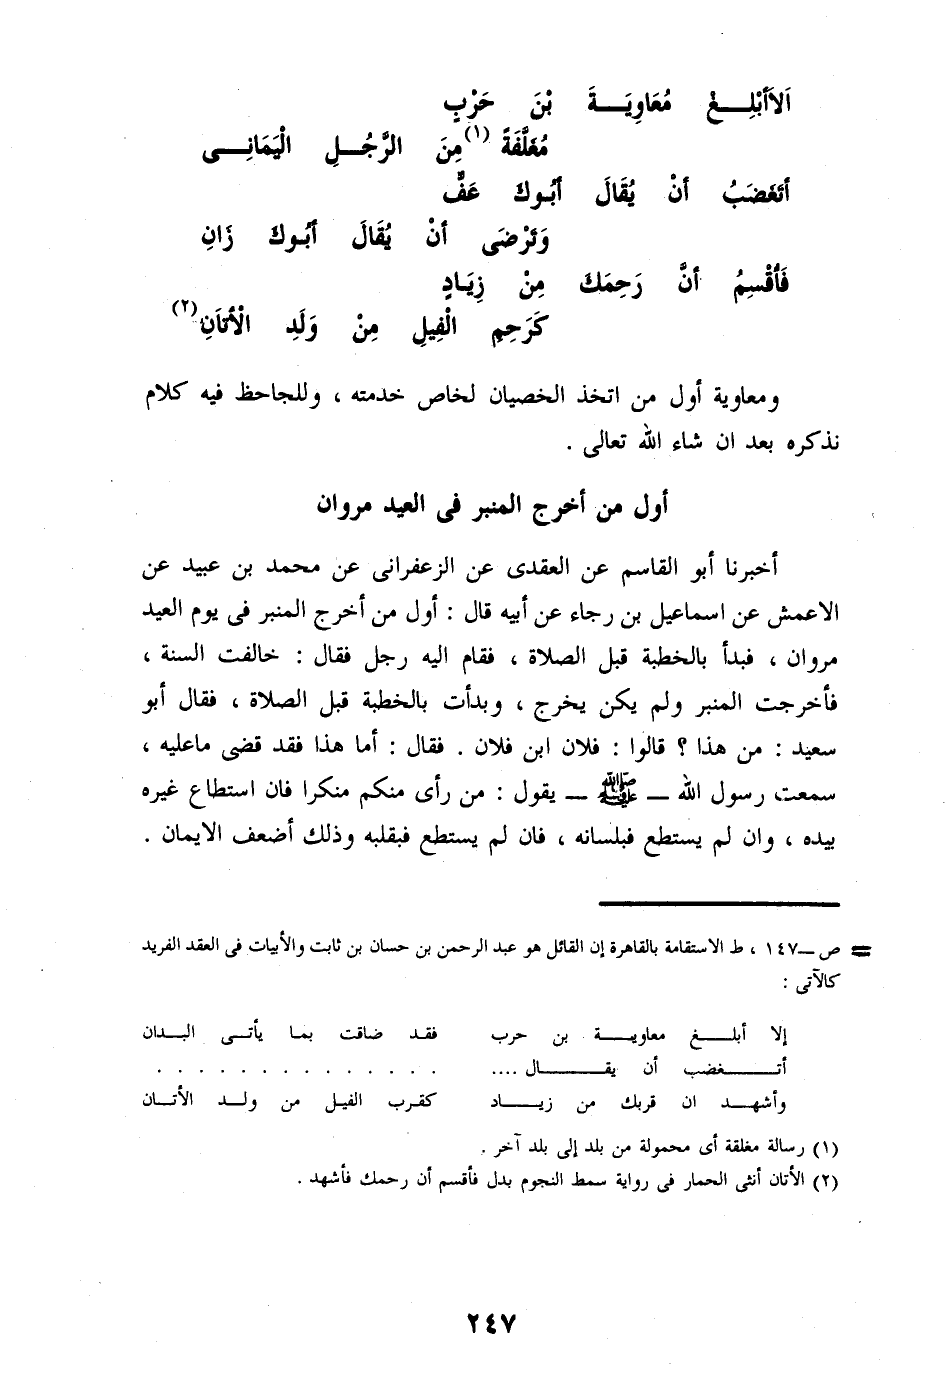 اَلاَأَبْلِــــغْ مُعَاوِيَـــةَ بْنَ حَرْبٍ
مُغَلَّفَةً (١) مِنَ الرَّجُـــلِ الْيَمَانِـــى
أَتَغضَبُ أَنْ يُقَالَ أَبُوكَ عَفٌّ
وَتَرْضَى أَنْ يُقَالَ أَبُوكَ زَانِ
فَأُقْسِمُ أَنَّ رَحِمَكَ مِنْ زِيَـادٍ
كَرَحِمِ الْفِيلِ مِنْ وَلَدِ الْأَتَانِ (٢)
ومعاوية أول من اتخذ الخصيان لخاص خدمته ، وللجاحظ فيه كلام
نذكره بعد ان شاء الله تعالى .
أول من أخرج المنبر فى العيد مروان
أخبرنا أبو القاسم عن العقدى عن الزعفرانى عن محمد بن عبيد عن
الاعمش عن اسماعيل بن رجاء عن أبيه قال : أول من أخرج المنبر فى يوم العيد
مروان ، فبدأ بالخطبة قبل الصلاة ، فقام اليه رجل فقال : خالفت السنة ،
فأخرجت المنبر ولم يكن يخرج ، وبدأت بالخطبة قبل الصلاة ، فقال أبو
سعيد : من هذا ؟ قالوا : فلان ابن فلان . فقال : أما هذا فقد قضى ماعليه ،
سمعت رسول الله ــ ﷺ ــ يقول : من رأى منكم منكرا فان استطاع غيره
بيده ، وان لم يستطع فبلسانه ، فان لم يستطع فبقلبه وذلك أضعف الايمان .
= ص ــ١٤٧ ، ط الاستقامة بالقاهرة إن القائل هو عبد الرحمن بن حسان بن ثابت والأبيات فى العقد الفريد
كالآتى :
إلا أبلــــغ معاويـــة بن حرب فقـد ضاقت بمـا يأتـى البـدان
أتــــغضب أن يقــــال .... . . . . . . . . . . . .
وأشهـــد ان قربك من زيـــاد كقـرب الفيـل مـن ولـد الأتـان
(١) رسالة مغلقة أى محمولة من بلد إلى بلد آخر .
(٢) الأتان أنثى الحمار فى رواية سمط النجوم بدل فأقسم أن رحمك فأشهد .
٢٤٧